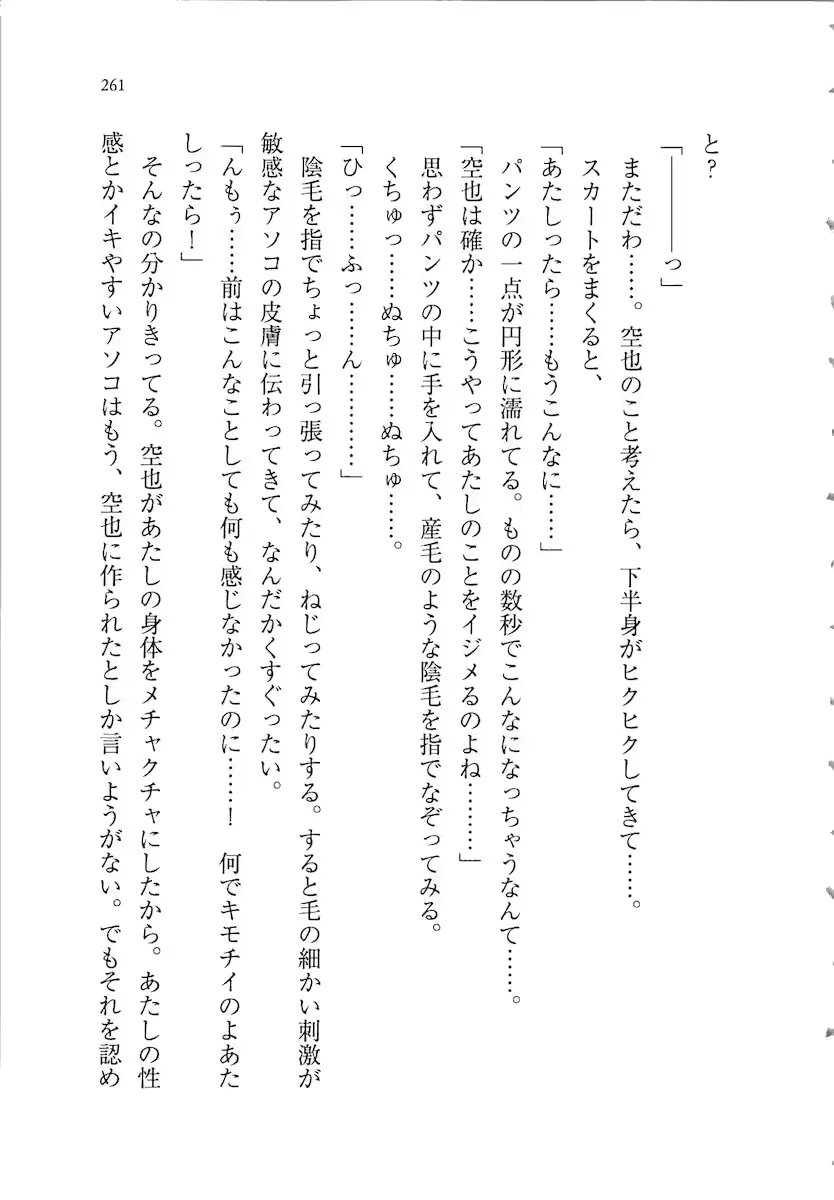 261
と？
「――――っ」
まただわ……。空也のこと考えたら、下半身がヒクヒクしてきて……。
スカートをまくると、
「あたしったら……もうこんなに……」
パンツの一点が円形に濡れてる。ものの数秒でこんなになっちゃうなんて……。
「空也は確か……こうやってあたしのことをイジメるのよね………」
思わずパンツの中に手を入れて、産毛のような陰毛を指でなぞってみる。
くちゅっ……ぬちゅ……ぬちゅ……。
「ひっ……ふっ……ん…………」
陰毛を指でちょっと引っ張ってみたり、ねじってみたりする。すると毛の細かい刺激が
敏感なアソコの皮膚に伝わってきて、なんだかくすぐったい。
「んもぅ……前はこんなことしても何も感じなかったのに……！　何でキモチイのよあた
しったら！」
そんなの分かりきってる。空也があたしの身体をメチャクチャにしたから。あたしの性
感とかイキやすいアソコはもう、空也に作られたとしか言いようがない。でもそれを認め